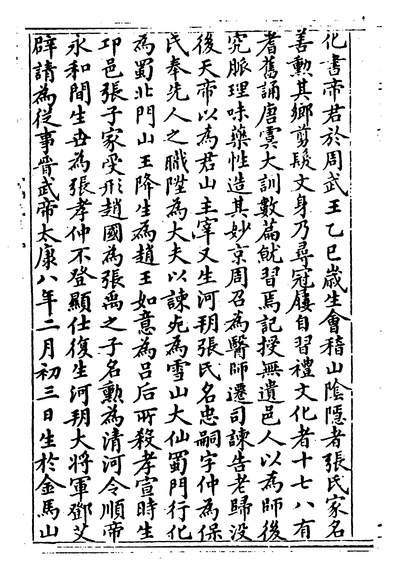 化書帝君於周武王乙巳歲生會稽山陰隱者張氏家名
善勳其鄉剪髮文身乃尋冠屨自習禮文化者十七八有
耆舊誦唐虞大訓數篇就習焉記授無遺邑人以為師後
究脈理味藥性造其妙京周召為醫師遷司諫告老歸没
後天帝以為君山主宰又生河朔張氏名忠嗣字仲為保
氏奉先人之職陞為大夫以諫死為雪山大仙蜀門行化
為蜀北門山王降生為趙王如意為呂后所殺孝宣時生
邛邑張子家受形趙國為張禹之子名勳為清河令順帝
永和間生丗為張孝仲不登顯仕復生河朔大將軍鄧艾
辟請為從事晉武帝太康八年二月初三日生於金馬山